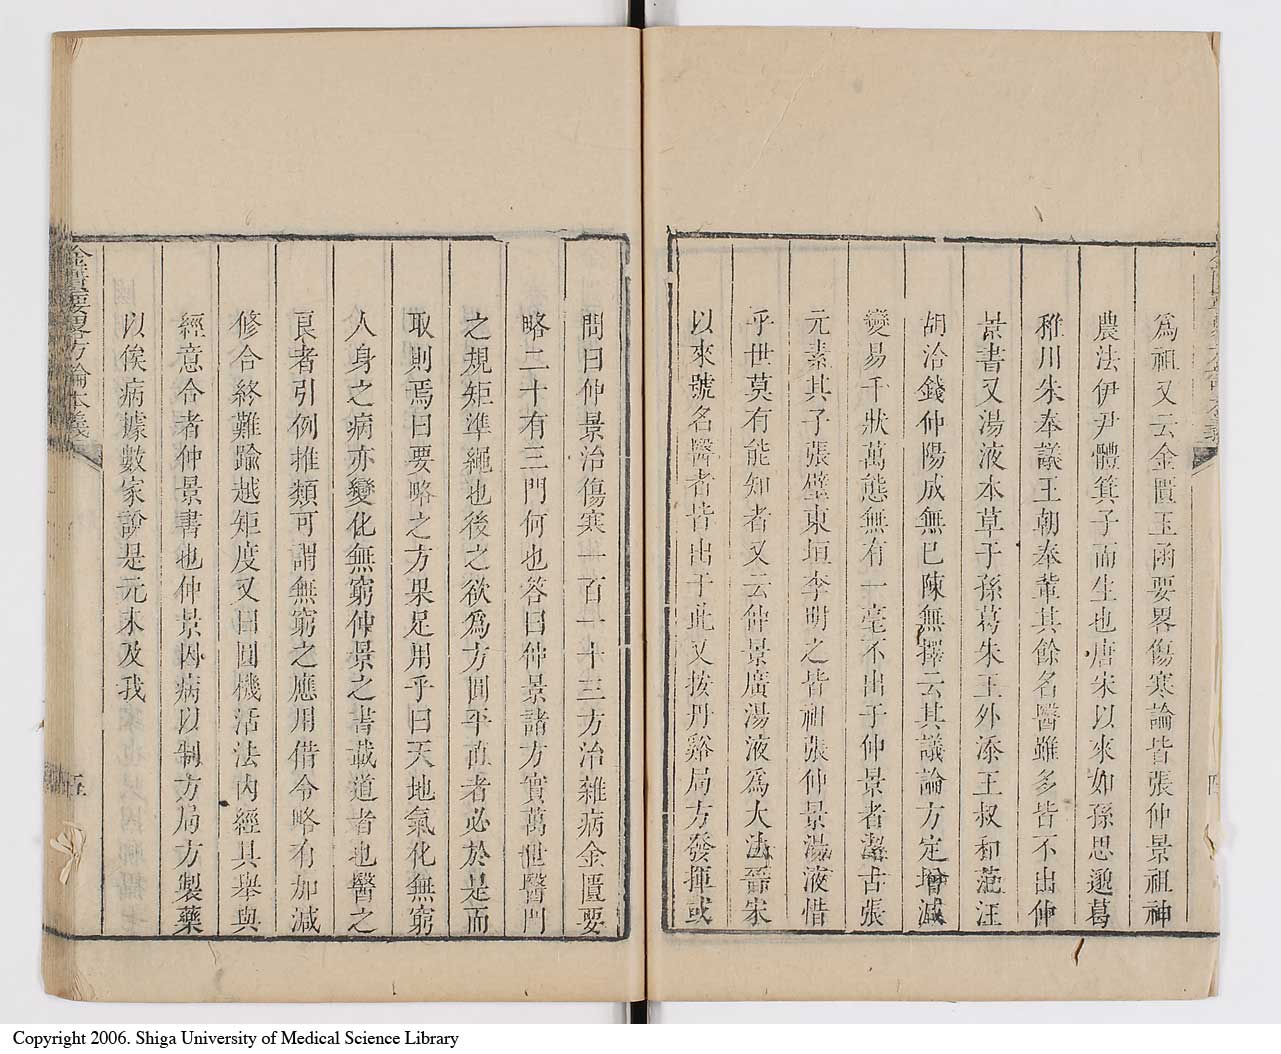 爲祖又云金匱玉函要畧傷寒論皆張仲景祖神
農法伊尹體箕子而生也唐宋以來如孫思邈葛
稚川朱奉議王朝奉軰其餘名醫雖多皆不出仲
景書又湯液本草于孫葛朱王外添王叔和范汪
胡洽錢仲陽成無已陳無擇云其議論方定增減
變易千狀萬態無有一毫不出于仲景者潔古張
元素其子張璧東垣李明之皆祖張仲景湯液惜
乎世莫有能知者又云仲景廣湯液爲大法晉宋
以來號名醫者皆出于此又按丹谿局方發揮或
問曰仲景治傷寒一百一十三方治雜病金匱要
略二十有三門何也答曰仲景諸方實萬世醫門
之規矩準繩也後之欲爲方圓平直者必於是而
取則焉曰要略之方果足用乎曰天地氣化無窮
人身之病亦變化無窮仲景之書載道者也醫之
良者引例推類可謂無窮之應用借令略有加減
修合終難踰越矩度又曰圓機活法內經具舉與
經意合者仲景書也仲景因病以制方局方製藥
以俟病據數家說是元末及我
金匱要畧方論本義
五
Copyright 2006. Shiga University of Medical Science Library